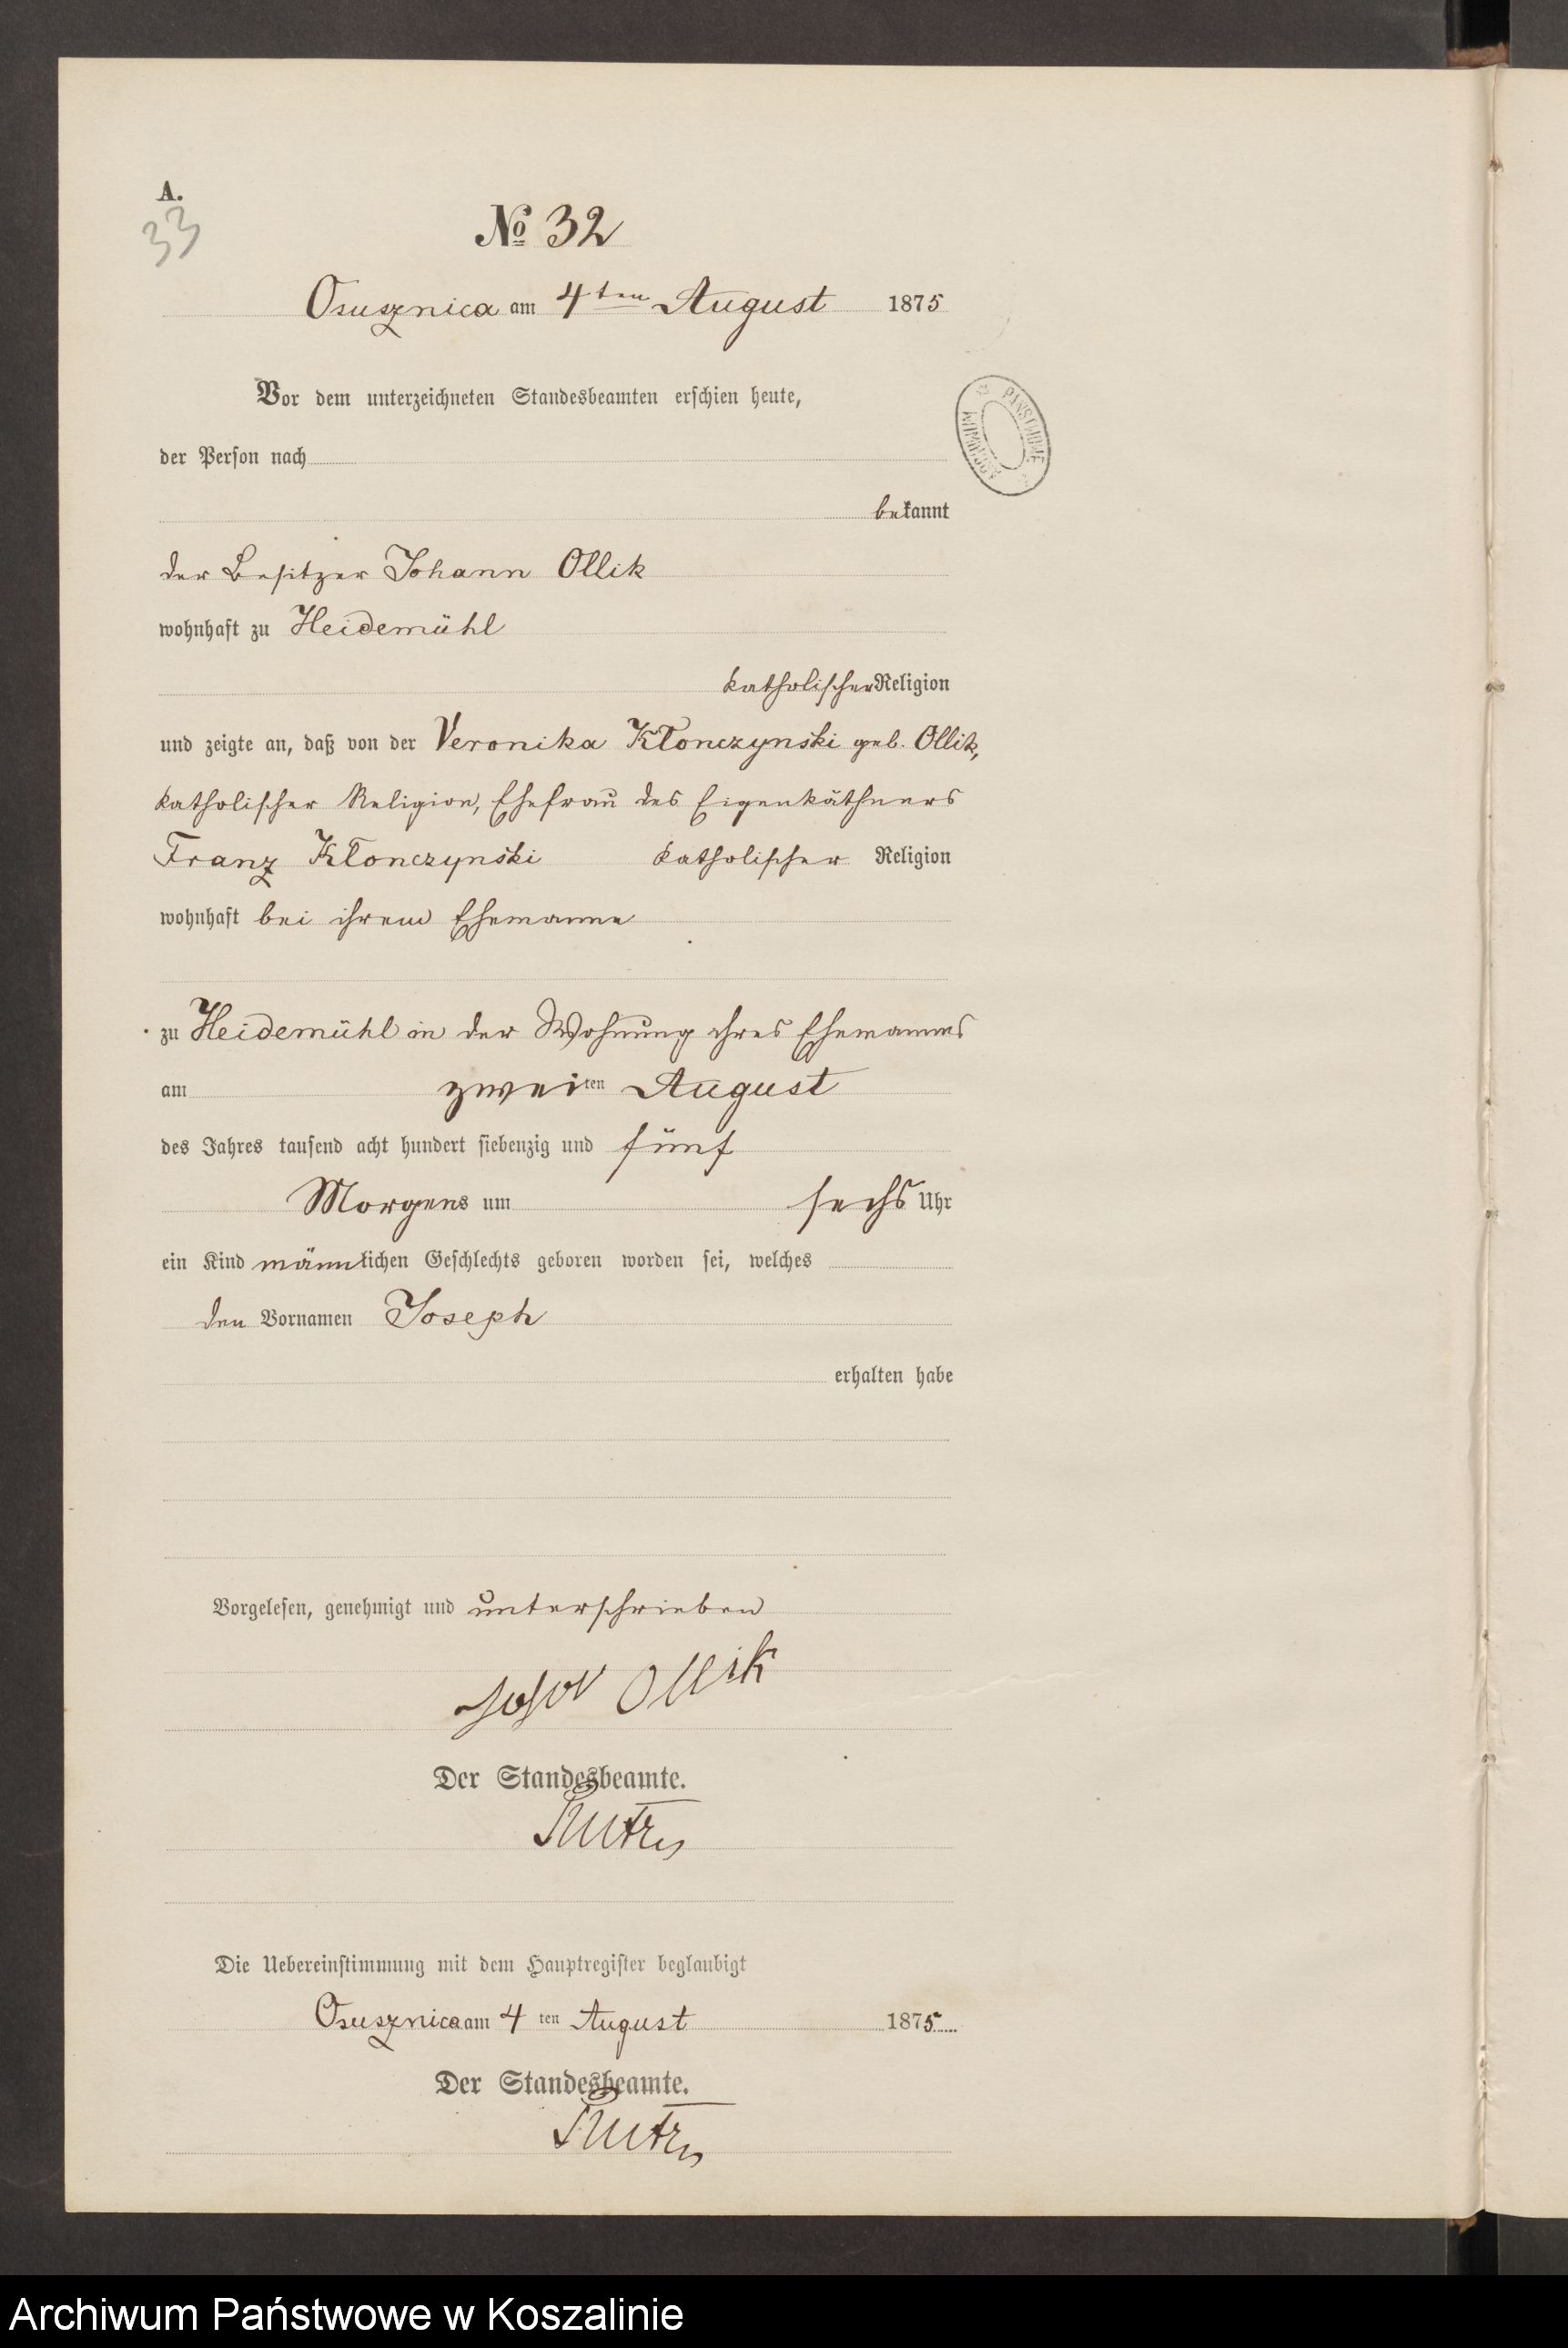 A.
33
No 32
Osusznica am 4ten August 1875
Vor dem unterzeichneten Standesbeamten erschien heute,
der Person nach
bekannt
PAŃSTWOWE
ARCHIWUM
der Besitzer Johann Ollik
wohnhaft zu Heidemühl
katholischer Religion
und zeigte an, daß von der Veronika Kłonczynski geb. Ollik,
katholischer Religion, Ehefrau des Eigenkäthners
Franz Kłonczynski katholischer Religion
wohnhaft bei ihrem Ehemanne
zu Heidemühl in der Wohnung ihres Ehemannes
am zweiten August
des Jahres tausend acht hundert siebenzig und fünf
Morgens um sechs Uhr
ein Kind männlichen Geschlechts geboren worden sei, welches
den Vornamen Joseph
erhalten habe
Vorgelesen, genehmigt und unterschrieben
Ollik
Der Standesbeamte.
Die Uebereinstimmung mit dem Hauptregister beglaubigt
Osusznica am 4 ten August 1875
Der Standesbeamte.
Archiwum Państwowe w Koszalinie